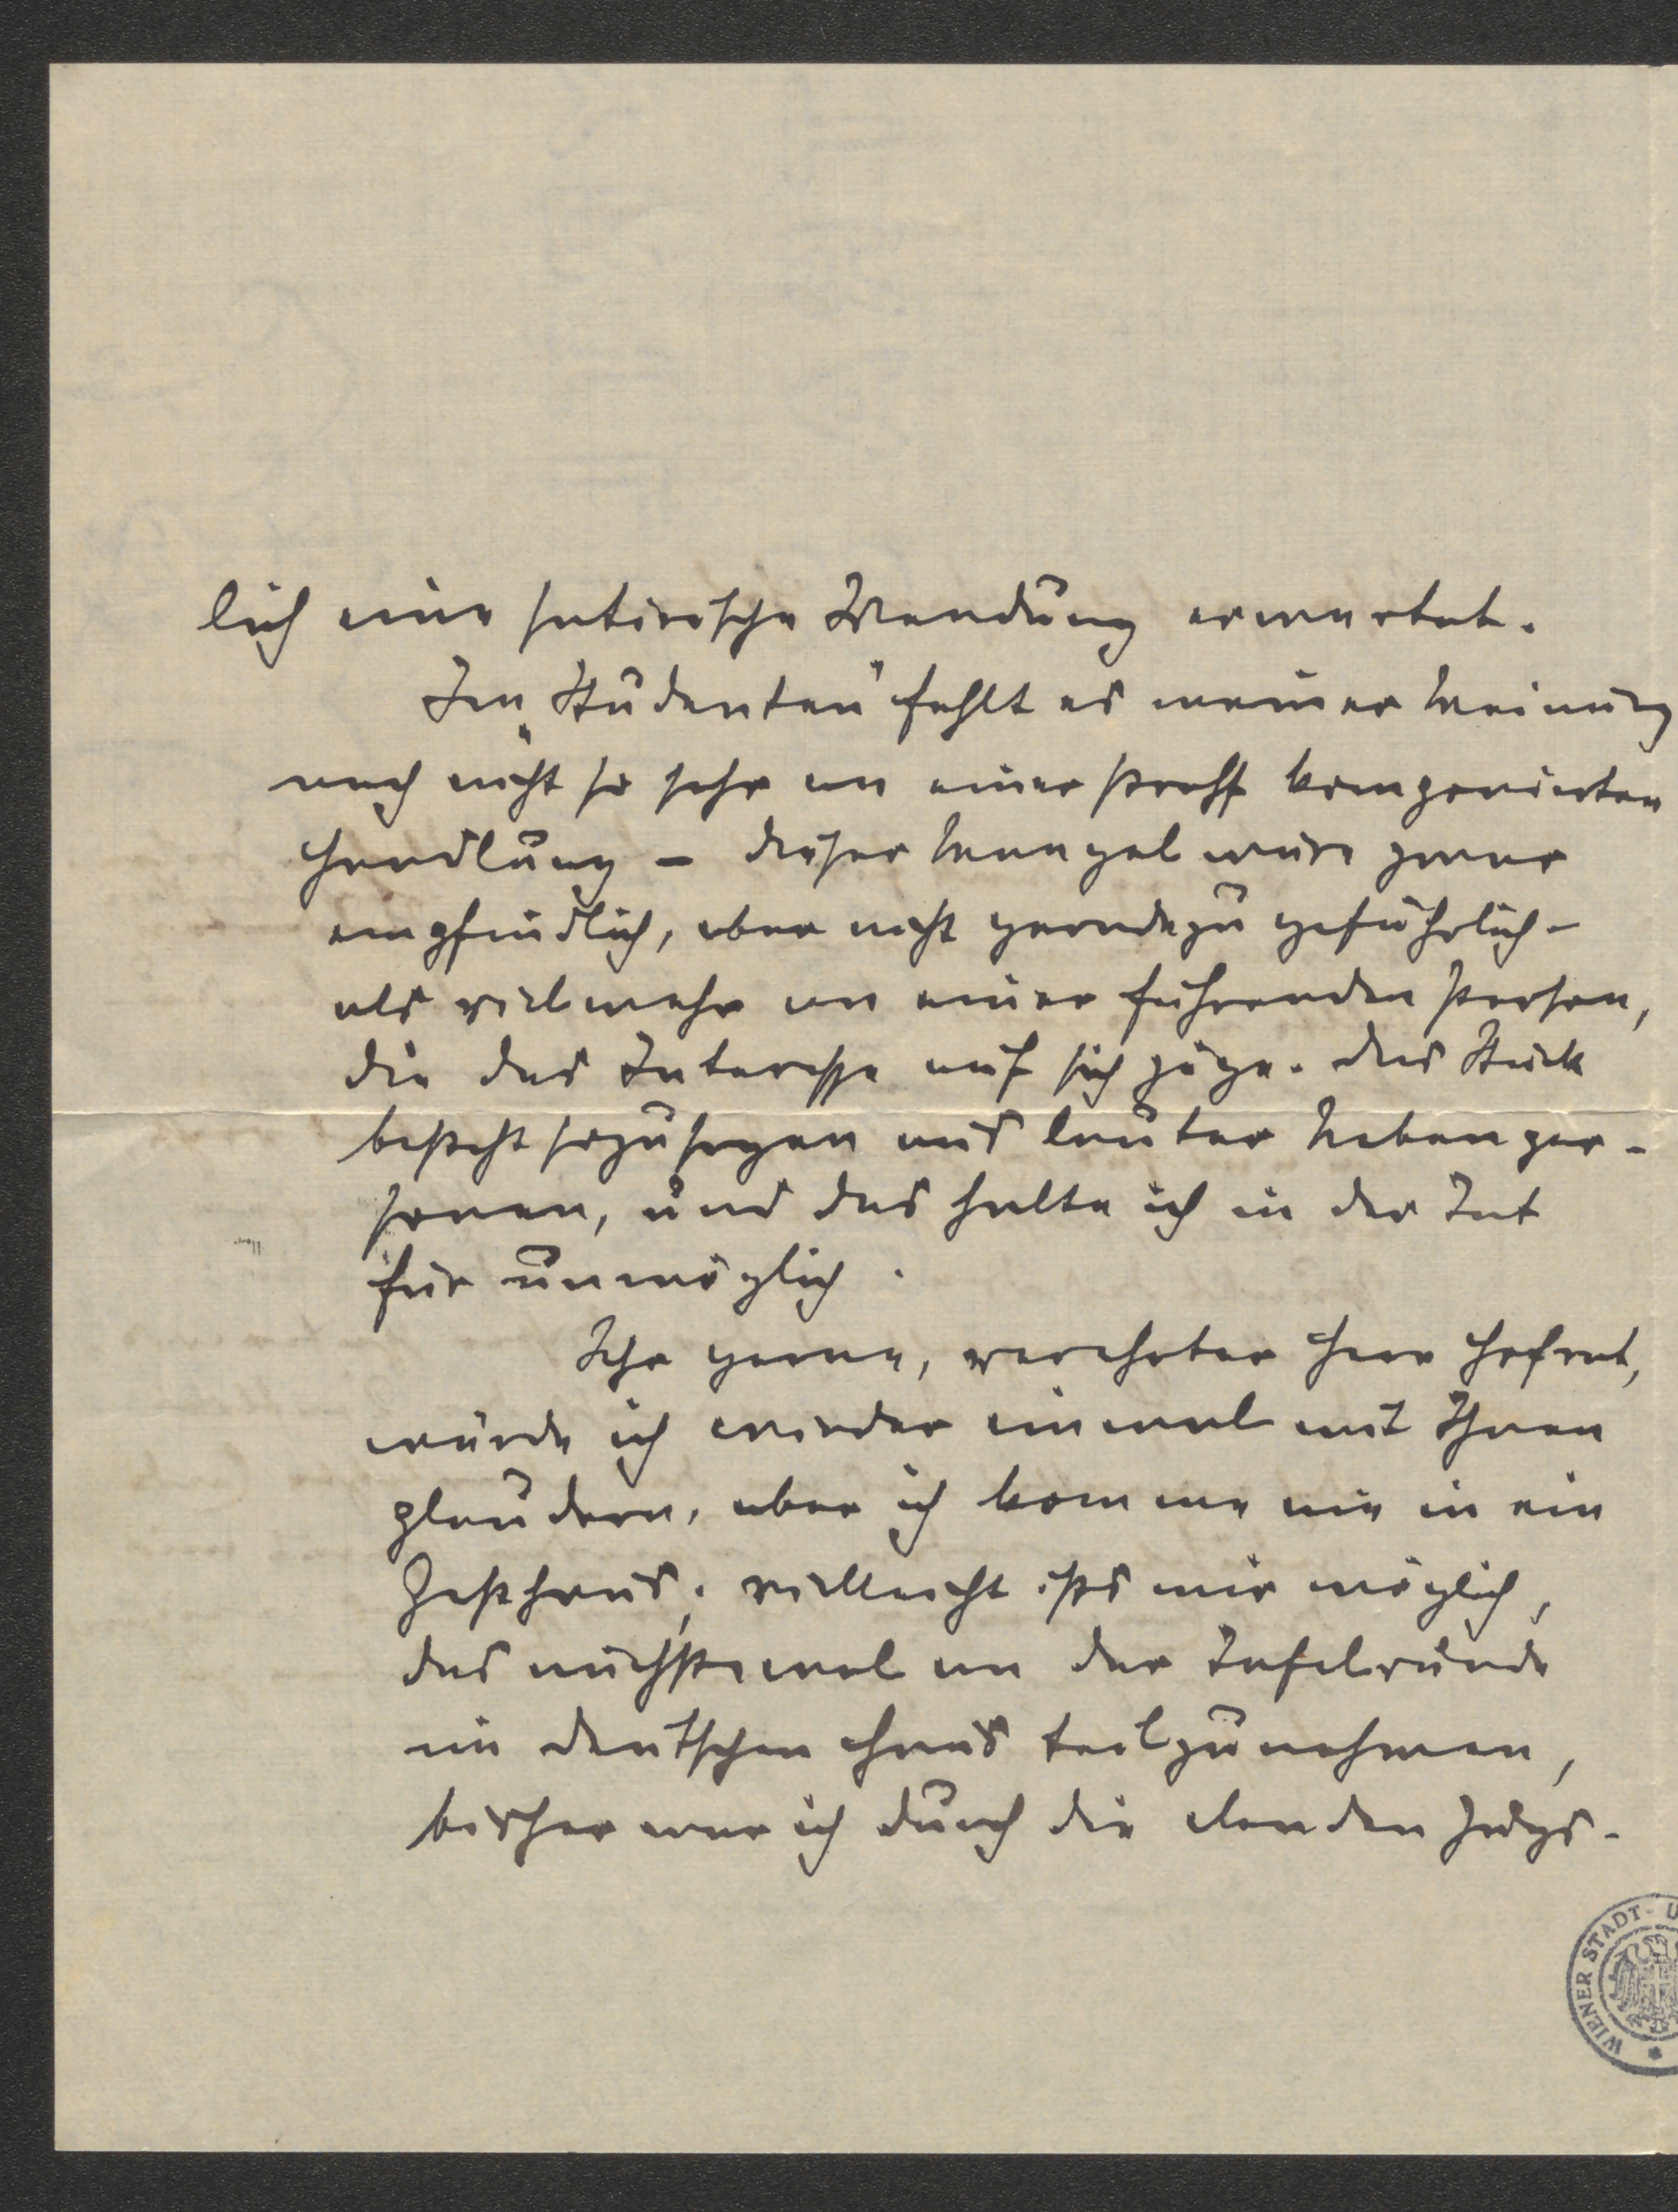 lich eine satirische Wendung erwartet.
Im „Studenten" fehlt es meiner Meinung
nach nicht so sehr an einer straff komponierten
Handlung – dieser Mangel wäre zwar
empfindlich, aber nicht geradezu gefährlich –
als vielmehr an einer führenden Person,
die das Interesse auf sich zöge. Das Stück
besteht sozusagen aus lauter Nebenper-
sonen, und das halte ich in der Tat
für unmöglich.
Sehr gerne, verehrter Herr Hofrat,
würde ich wieder einmal mit Ihnen
plaudern, aber ich komme nie in ein
Gasthaus; vielleicht ists mir möglich,
das nächstemal an der Tafelrunde
im deutschen Haus teilzunehmen,
bisher war ich durch die elenden
WIENER STADT- U